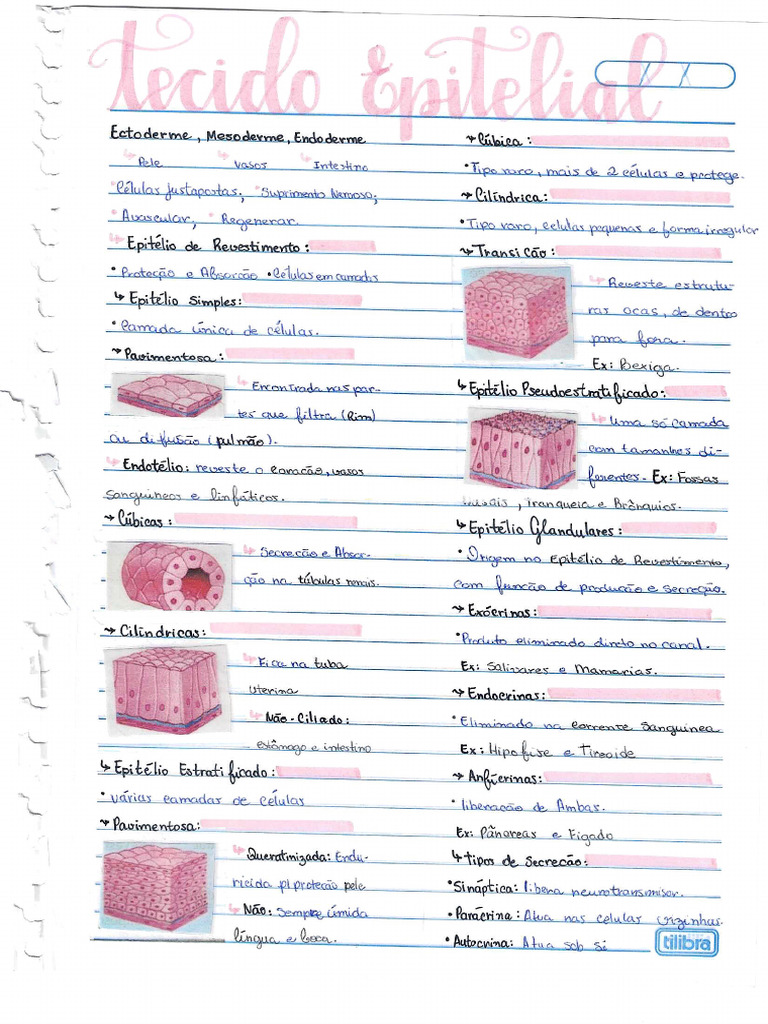 Tecido Epitelial
Ectoderme, Mesoderme, Endoderme
↳ Pele ↳ vasos ↳ Intestino
•Células justapostas, •Suprimento Nervoso,
•Avascular, •Regenerar.
↳ Epitélio de Revestimento:
•Proteção e Absorção •Células em camadas
↳ Epitélio Simples:
•Camada única de células.
→ Pavimentosa:
↳ Encontrada nas par-
tes que filtra (Rim)
ou difusão (pulmão).
↳ Endotélio: reveste o coração, vasos
sanguíneos e linfáticos.
→ Cúbicas:
↳ Secreção e Absor-
ção na túbulas renais.
→ Cilíndricas:
↳ Fica na tuba
uterina
↳ Não-Ciliado:
estômago e intestino
↳ Epitélio Estratificado:
•várias camadas de células
→ Pavimentosa:
↳ Queratinizada: Endu-
recida p/ proteção pele
↳ Não: Sempre úmida
língua e boca.
→ Cúbica:
•Tipo raro, mais de 2 células e protege.
→ Cilíndrica:
•Tipo raro, celulas pequenas e forma irregular
→ Transição:
↳ Reveste estrutu-
ras ocas, de dentro
para fora.
Ex: Bexiga.
↳ Epitélio Pseudoestratificado:
↳ Uma só camada
com tamanhos di-
ferentes. Ex: Fossas
Nasais, Tranqueia e Brônquios.
↳ Epitélio Glandulares:
•Origem no Epitélio de Revestimento,
com função de produção e secreção.
→ Exócrinas:
•Produto eliminado direto no canal.
Ex: Salivares e Mamarias.
→ Endocrinas:
•Eliminado na corrente Sanguinea
Ex: Hipofise e Tireoide
→ Anfícrinas:
•liberação de Ambas.
Ex: Pâncreas e Figado
↳ tipos de Secreção:
•Sináptica: libera neurotransmisor.
•Parácrina: Atua nas celulas vizinhas.
•Autocrina: Atua sob si
tilibra